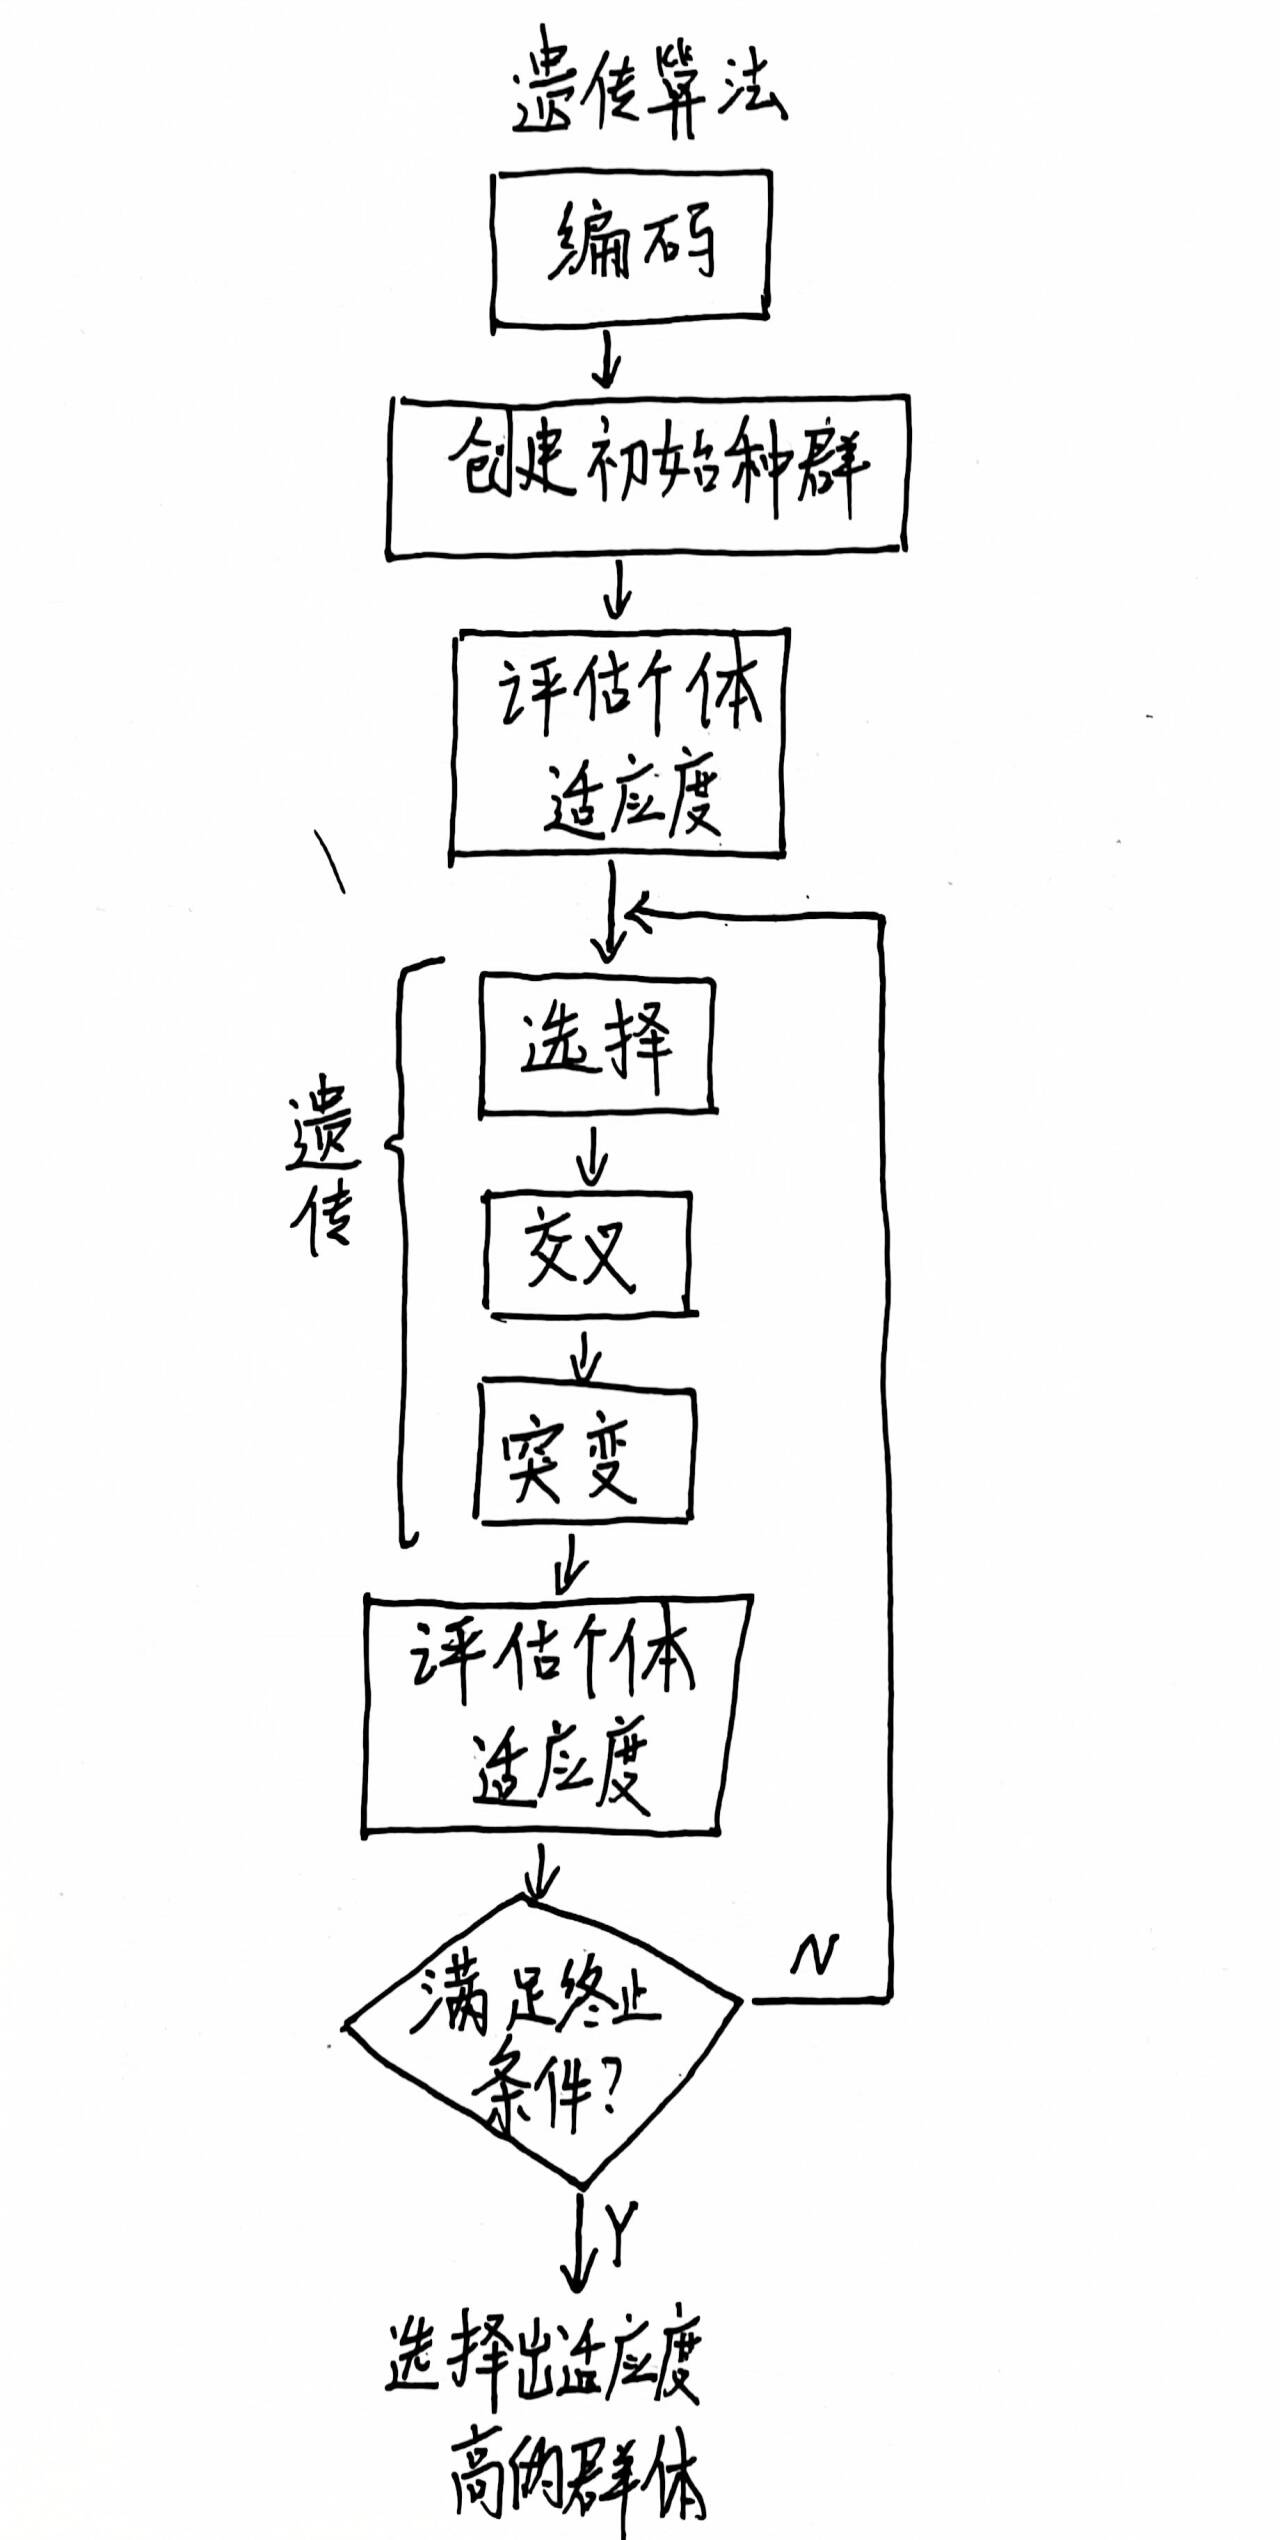 遗传算法
编码
创建初始种群
评估个体
适应度
选择
遗
传
交叉
突变
评估个体
适应度
满足终止
条件？
N
Y
选择出适应度
高的群体